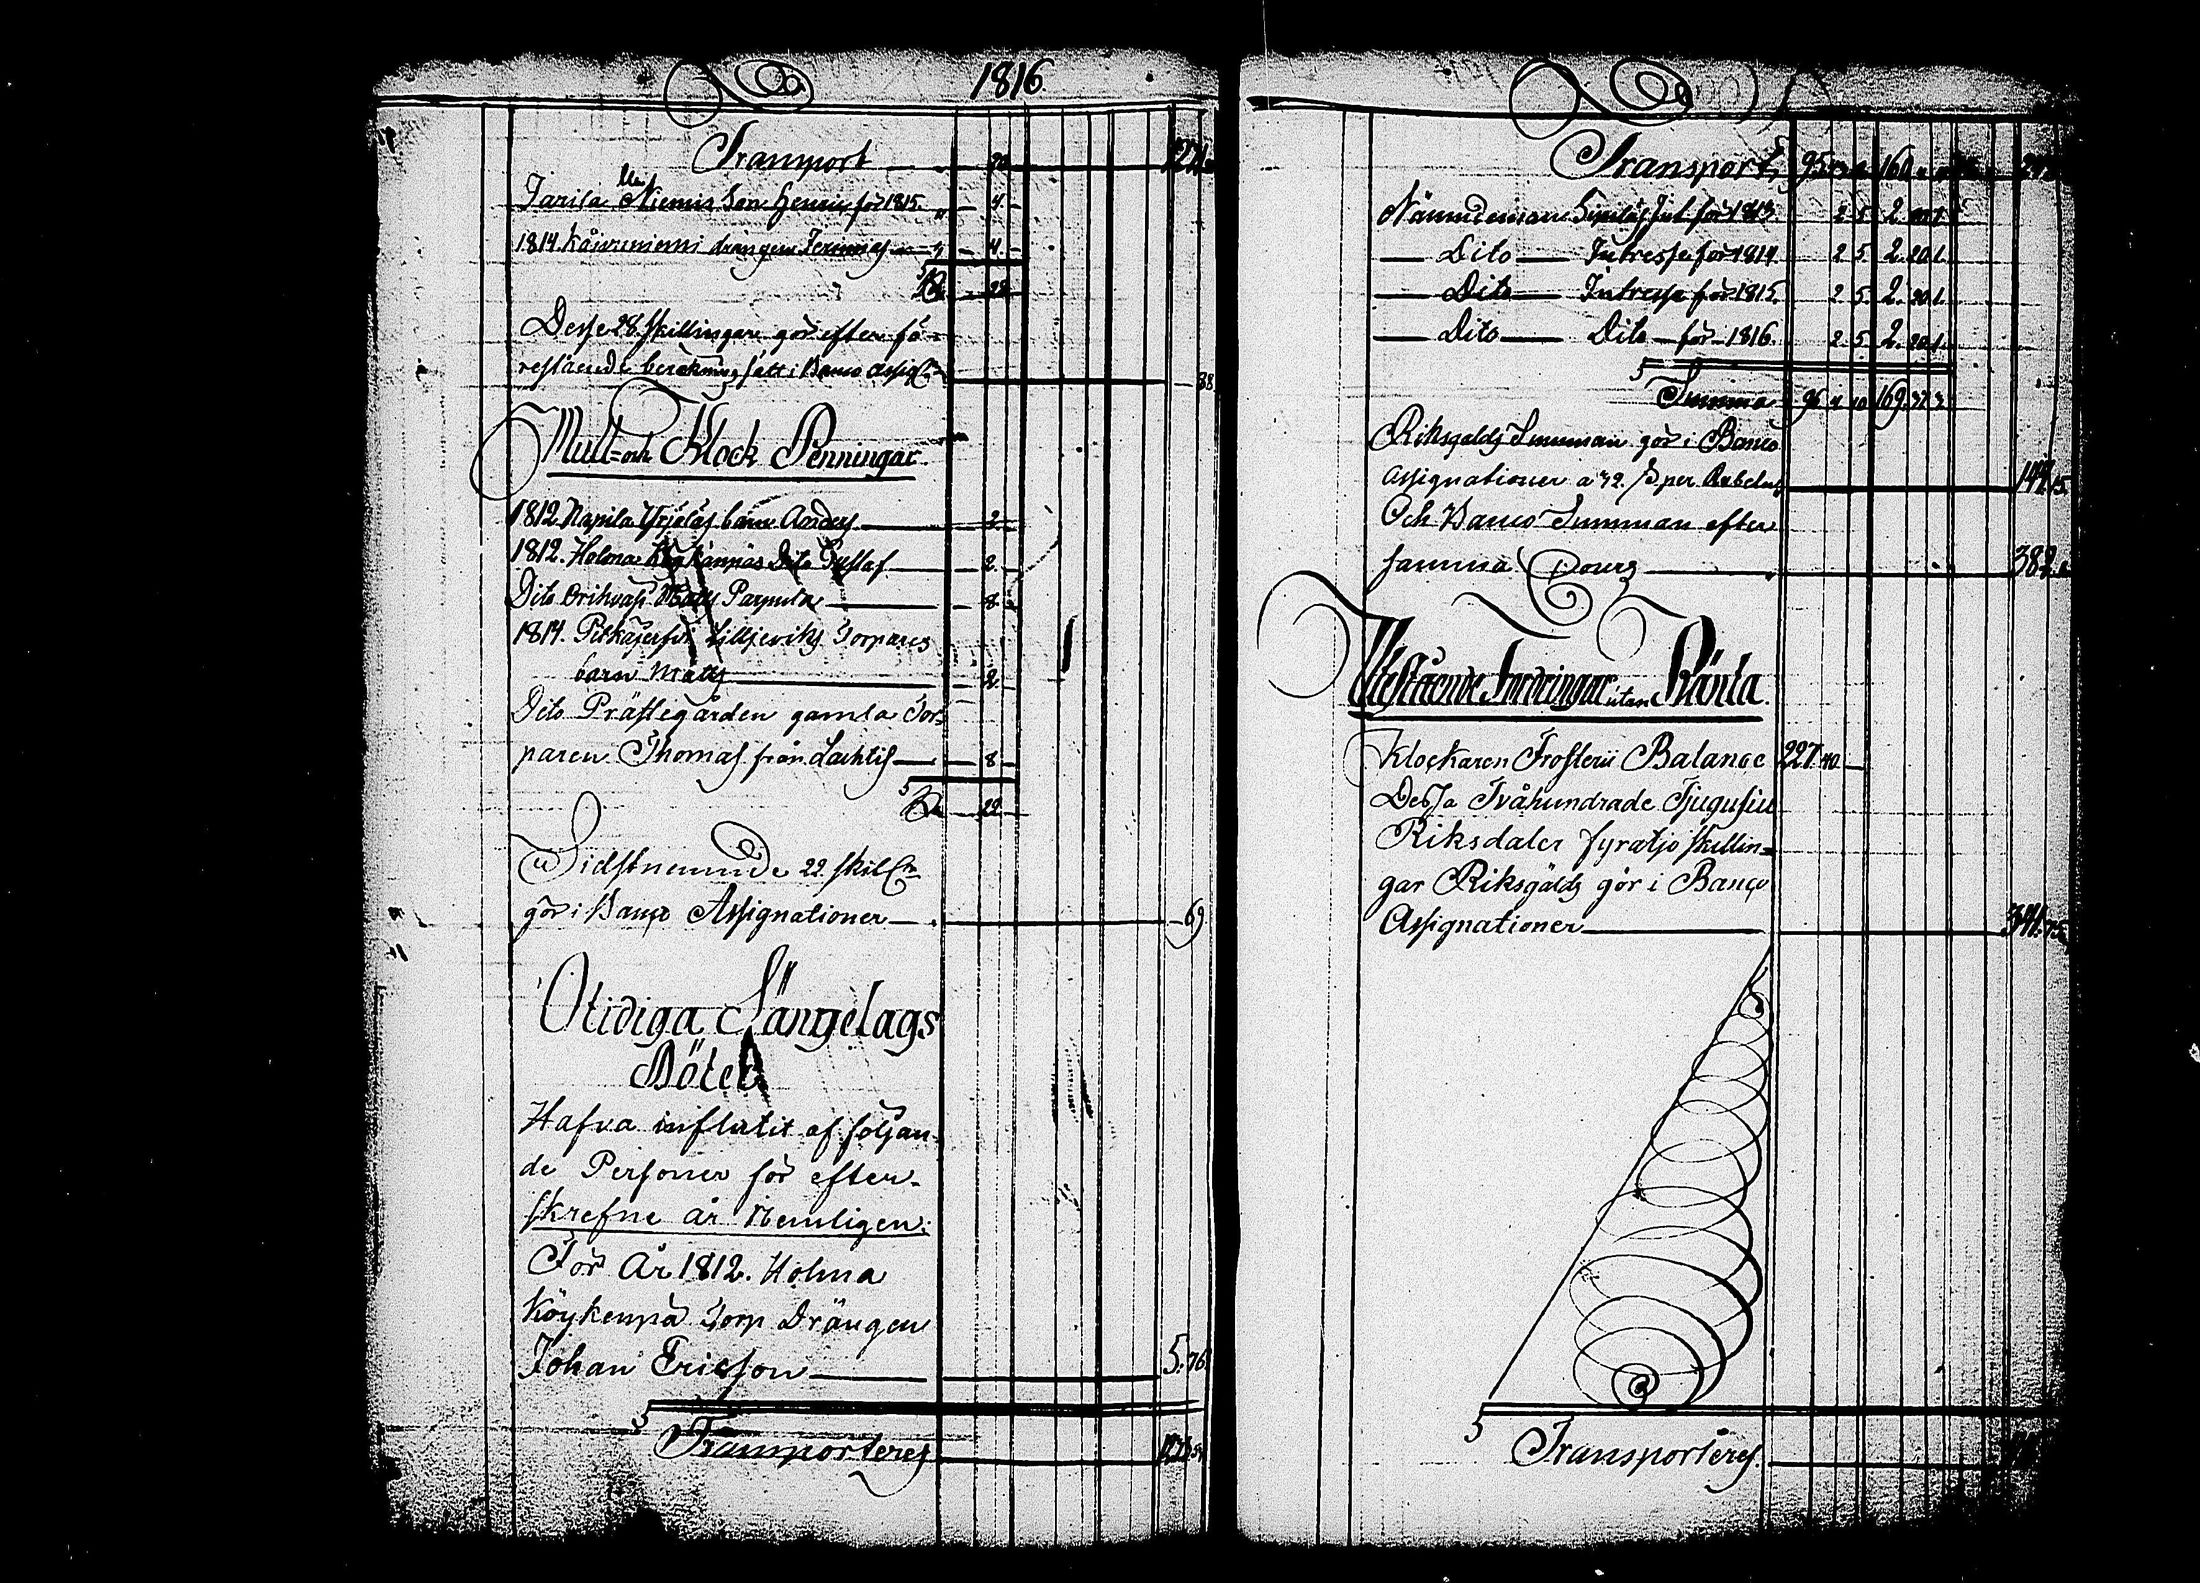 1816.
Transport 20
Jarila Niemis Son Henric för 1815. 4.
1814. drängen 4.
28
Desse 28. Skillingar gör efter fö-
restående berekningssätt i Banco Assig 88
Mull- och Klock Penningar
1812. Napila Yrjeläs barn Anders 2.
1812. Holma Dito Gustaf 2.
Dito Orihvasi Matts 8.
1814. Lilljeviks Torpares
barn Matts 2.
Dito Prästegården gamla Tor-
paren Thomas från Lachtis 8
22
Sidstnemnde 22. skil
gör i Banco Assignationer 69.
Otidiga Sängelags
Böter
Hafva influtit af följan-
de Personer för efter-
skrefne år Nemligen:
För År 1812. Holma
Köykenpä Torp Drängen
Johan Ericsson 5. 76.
Transporteres
Transport 95 160
Nämndeman Int för 1813. 2 5. 2. 20. 1.
Dito Intresse för 1814. 2 5. 2. 20. 1.
Dito Intresse för 1815. 2 5. 2. 20. 1.
Dito Dito för 1816. 2 5. 2. 20. 1.
Summa 96 169.
Riksgälds Summan gör i Banco
Assignationer a 72. per Rubeln 15.
Och Banco Summan efter
samma Cours 382.
Utestående Fordringar utan Ränta.
Klockaren Frosterii Balance 227. 40.
Dessa Tvåhundrade Tjugusju
Riksdaler fyratjo skillin-
gar Riksgälds gör i Banco
Assignationer 341. 75.
Transporteres